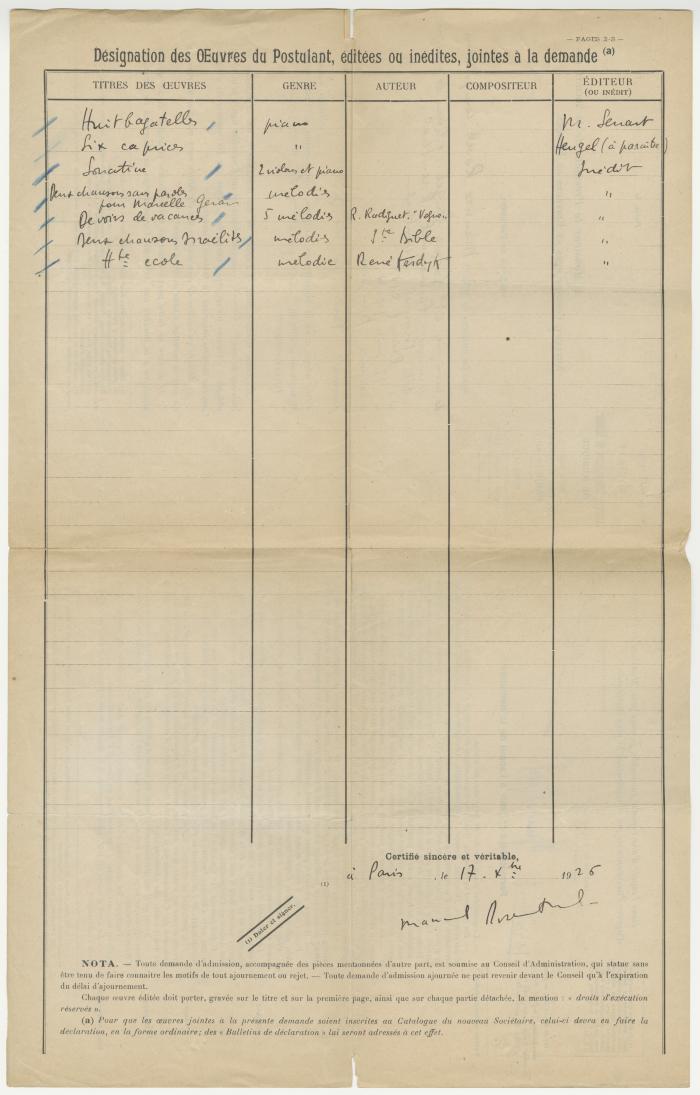 — PAGES 2-3 —
Désignation des Œuvres du Postulant, éditées ou inédites, jointes à la demande (a)
TITRES DES ŒUVRES GENRE AUTEUR COMPOSITEUR ÉDITEUR
(OU INÉDIT)
Huit bagatelles piano M. Senart
Six caprices " Heugel (à paraître)
Sonatine 2 violons et piano Inédit
Deux chansons sans paroles mélodies "
pour Marcelle Gerar
Devoirs de vacances 5 mélodies R. Radiguet. "
Deux chansons Israélites mélodies Ste Bible "
Hte ecole melodie René Kerdyk "
Certifié sincère et véritable,
(1) à Paris , le 17 - Xbre 1926
(1) Dater et signer.
Manuel Rosenthal
NOTA. — Toute demande d'admission, accompagnée des pièces mentionnées d'autre part, est soumise au Conseil d'Administration, qui statue sans
être tenu de faire connaître les motifs de tout ajournement ou rejet. — Toute demande d'admission ajournée ne peut revenir devant le Conseil qu'à l'expiration
du délai d'ajournement.
Chaque œuvre éditée doit porter, gravée sur le titre et sur la première page, ainsi que sur chaque partie détachée, la mention : « droits d'exécution
réservés ».
(a) Pour que les œuvres jointes à la présente demande soient inscrites au Catalogue du nouveau Sociétaire, celui-ci devra en faire la
déclaration, en la forme ordinaire; des « Bulletins de déclaration » lui seront adressés à cet effet.